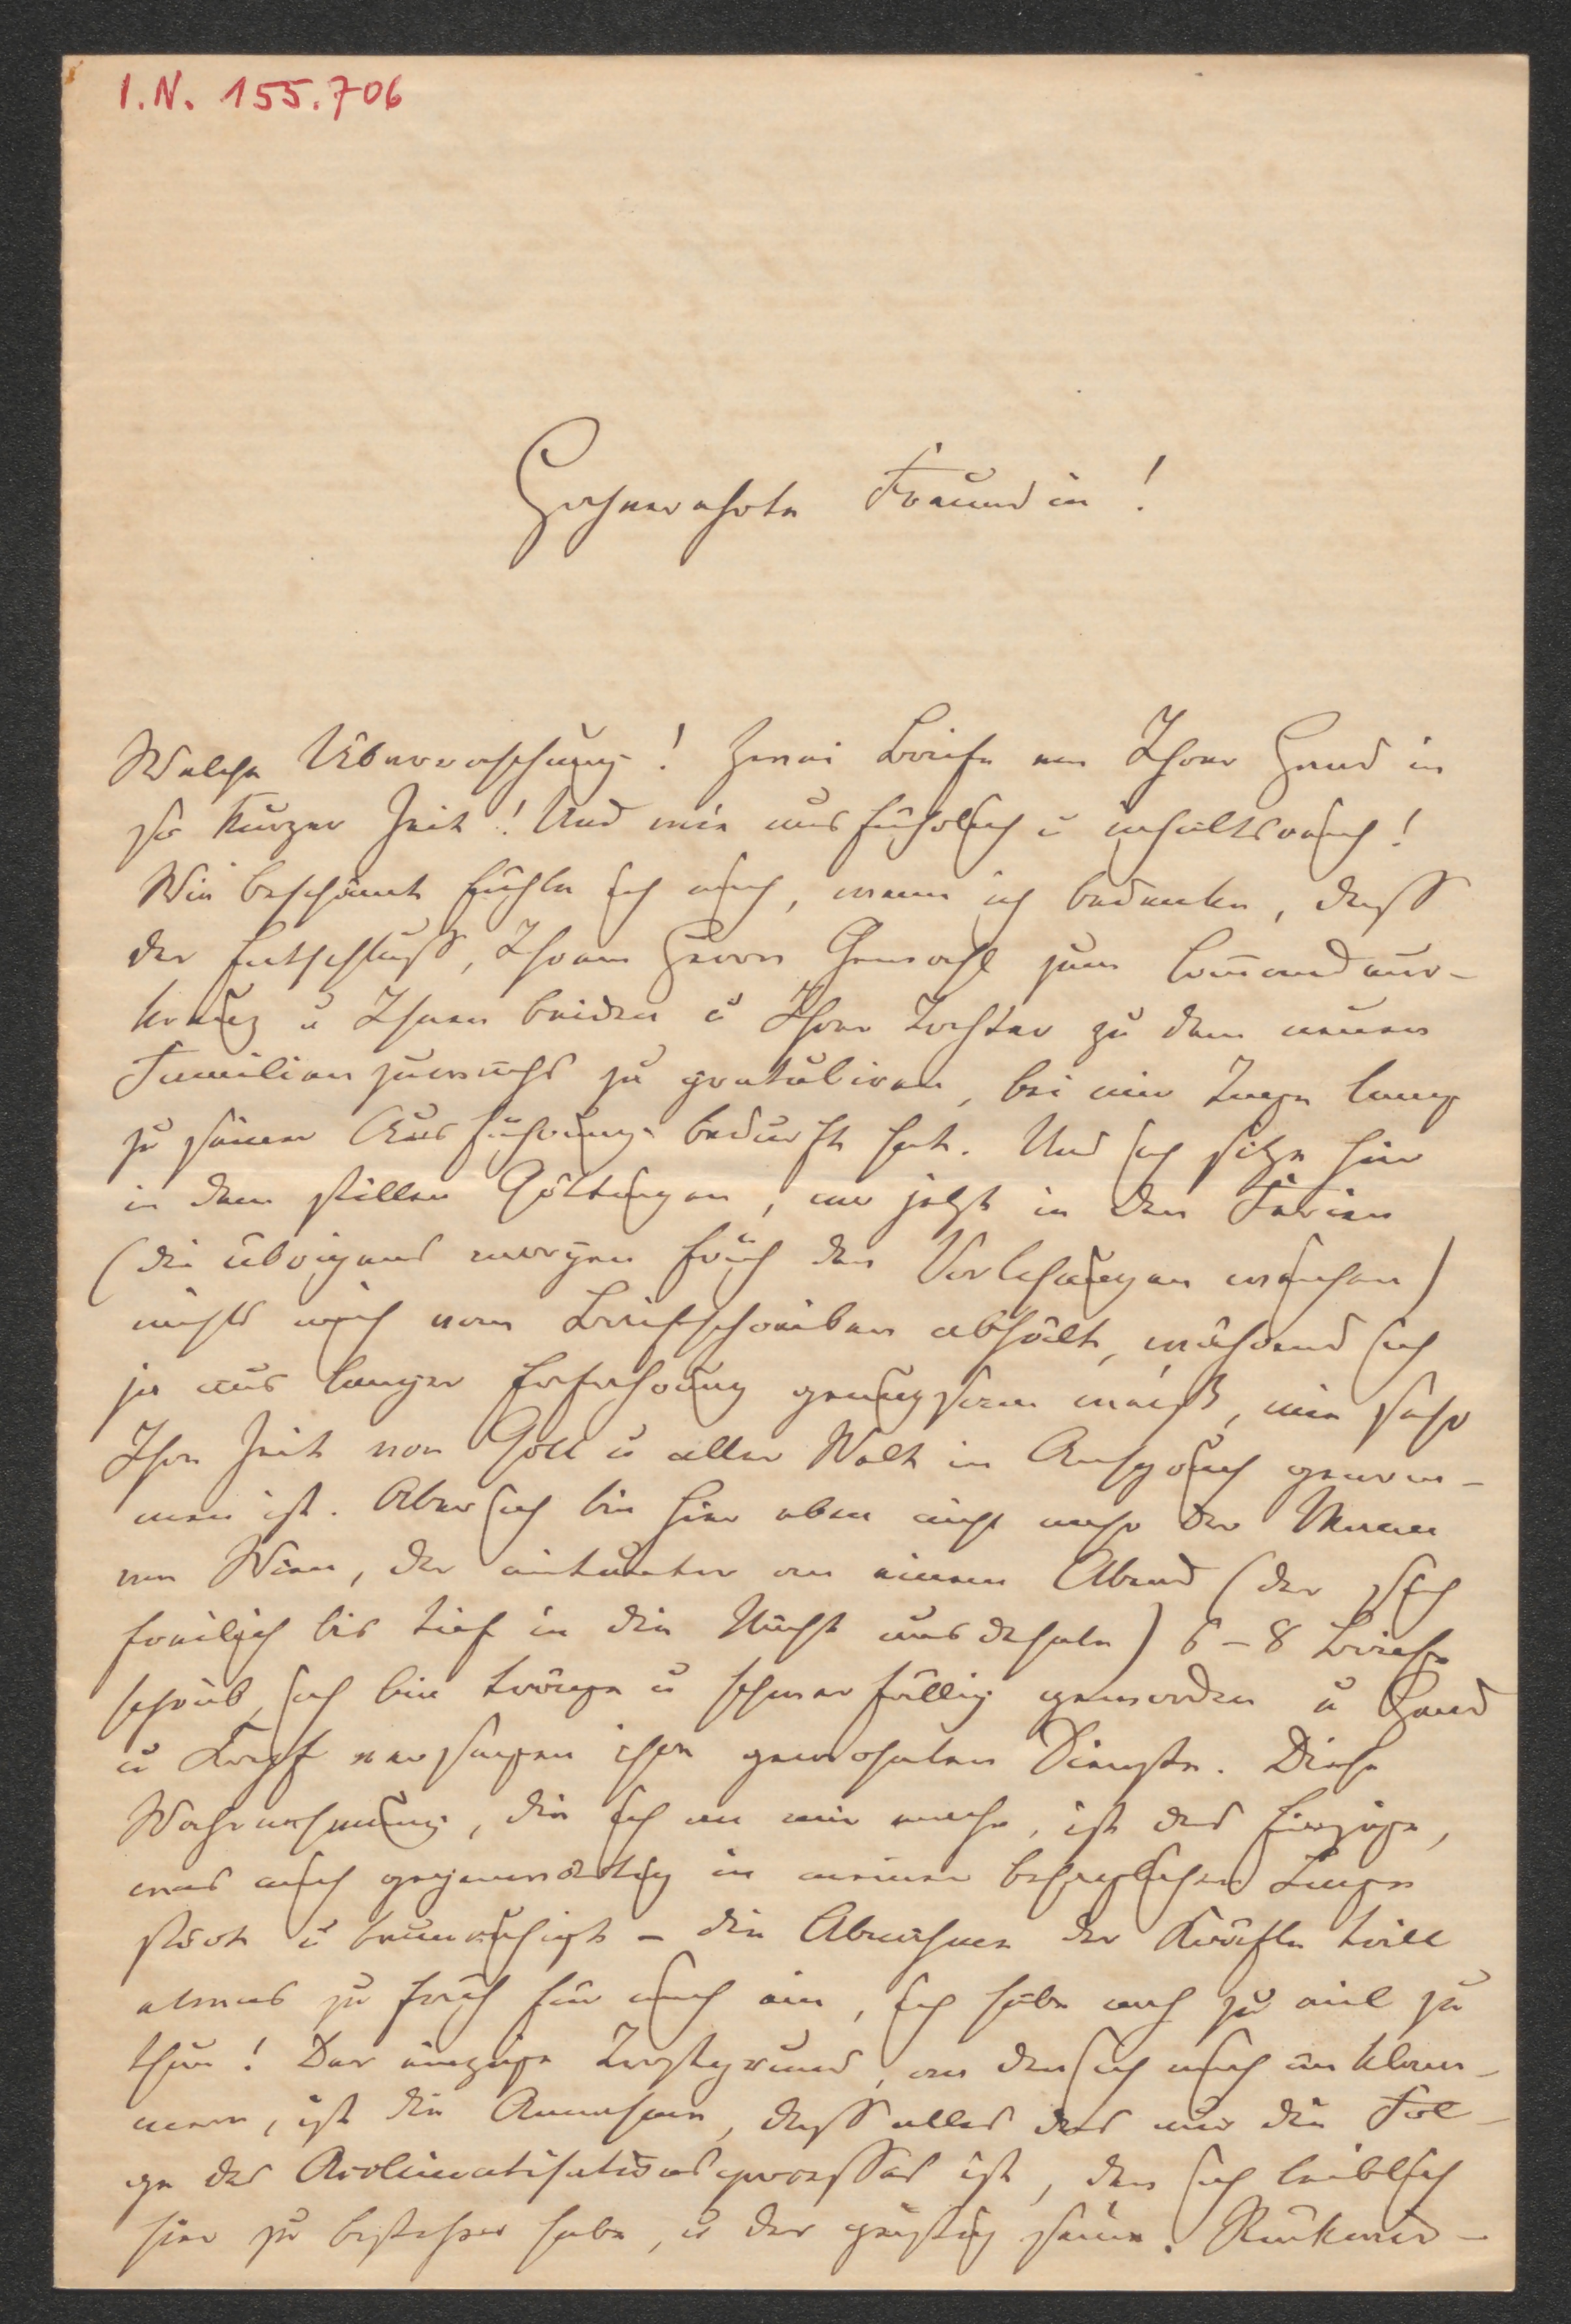 I.N. 155.706
Hochverehrte Freundin!
Welche Überraschung! Zwei Briefe von Ihrer Hand in
so kurzer Zeit! Und wie ausführlich u inhaltsreich!
Wie beschämt fühle ich mich, wenn ich bedenke, dass
der Entschluss, Ihrem Herrn Gemahl zum Comandeur-
kreuz u Ihnen beiden u Ihrer Tochter zu dem neuen
Familienzuwachs zu gratuliren, bei mir Tage lang
zu seiner Ausführung bedurft hat. Und ich sitze hier
in dem stillen Göttingen, wo jetzt in den Ferien
(die übrigens morgen früh den Vorlesungen weichen)
nichts mich vom Briefschreiben abhält, während ich
ja aus langer Erfahrung genugsam weiß, wie sehr
Ihre Zeit von Gott u aller Welt in Anspruch genom-
men ist. Aber ich bin hier eben nicht mehr der Mann
von Wien, der mitunter an einem Abend (der sich
freilich bis tief in die Nacht ausdehnte) 6-8 Briefe
schrieb, ich bin träge u schwerfällig geworden u Hand
u Kopf versagen ihre gewohnten Dienste. Diese
Wahrnehmung, die ich an mir mache, ist das Einzige,
was mich gegenwärtig in meiner behaglichen Lage
stört u beunruhigt – die Abnahme der Kräfte tritt
etwas zu früh für mich ein, ich habe noch zu viel zu
thun! Der einzige Trostgrund, an den ich mich an klam-
mere, ist die Annahme, dass alles das nur die Fol-
ge des Acclimatisationsprocesses ist, den ich leiblich
hier zu bestehen habe, u der geistig seine Rückwir-